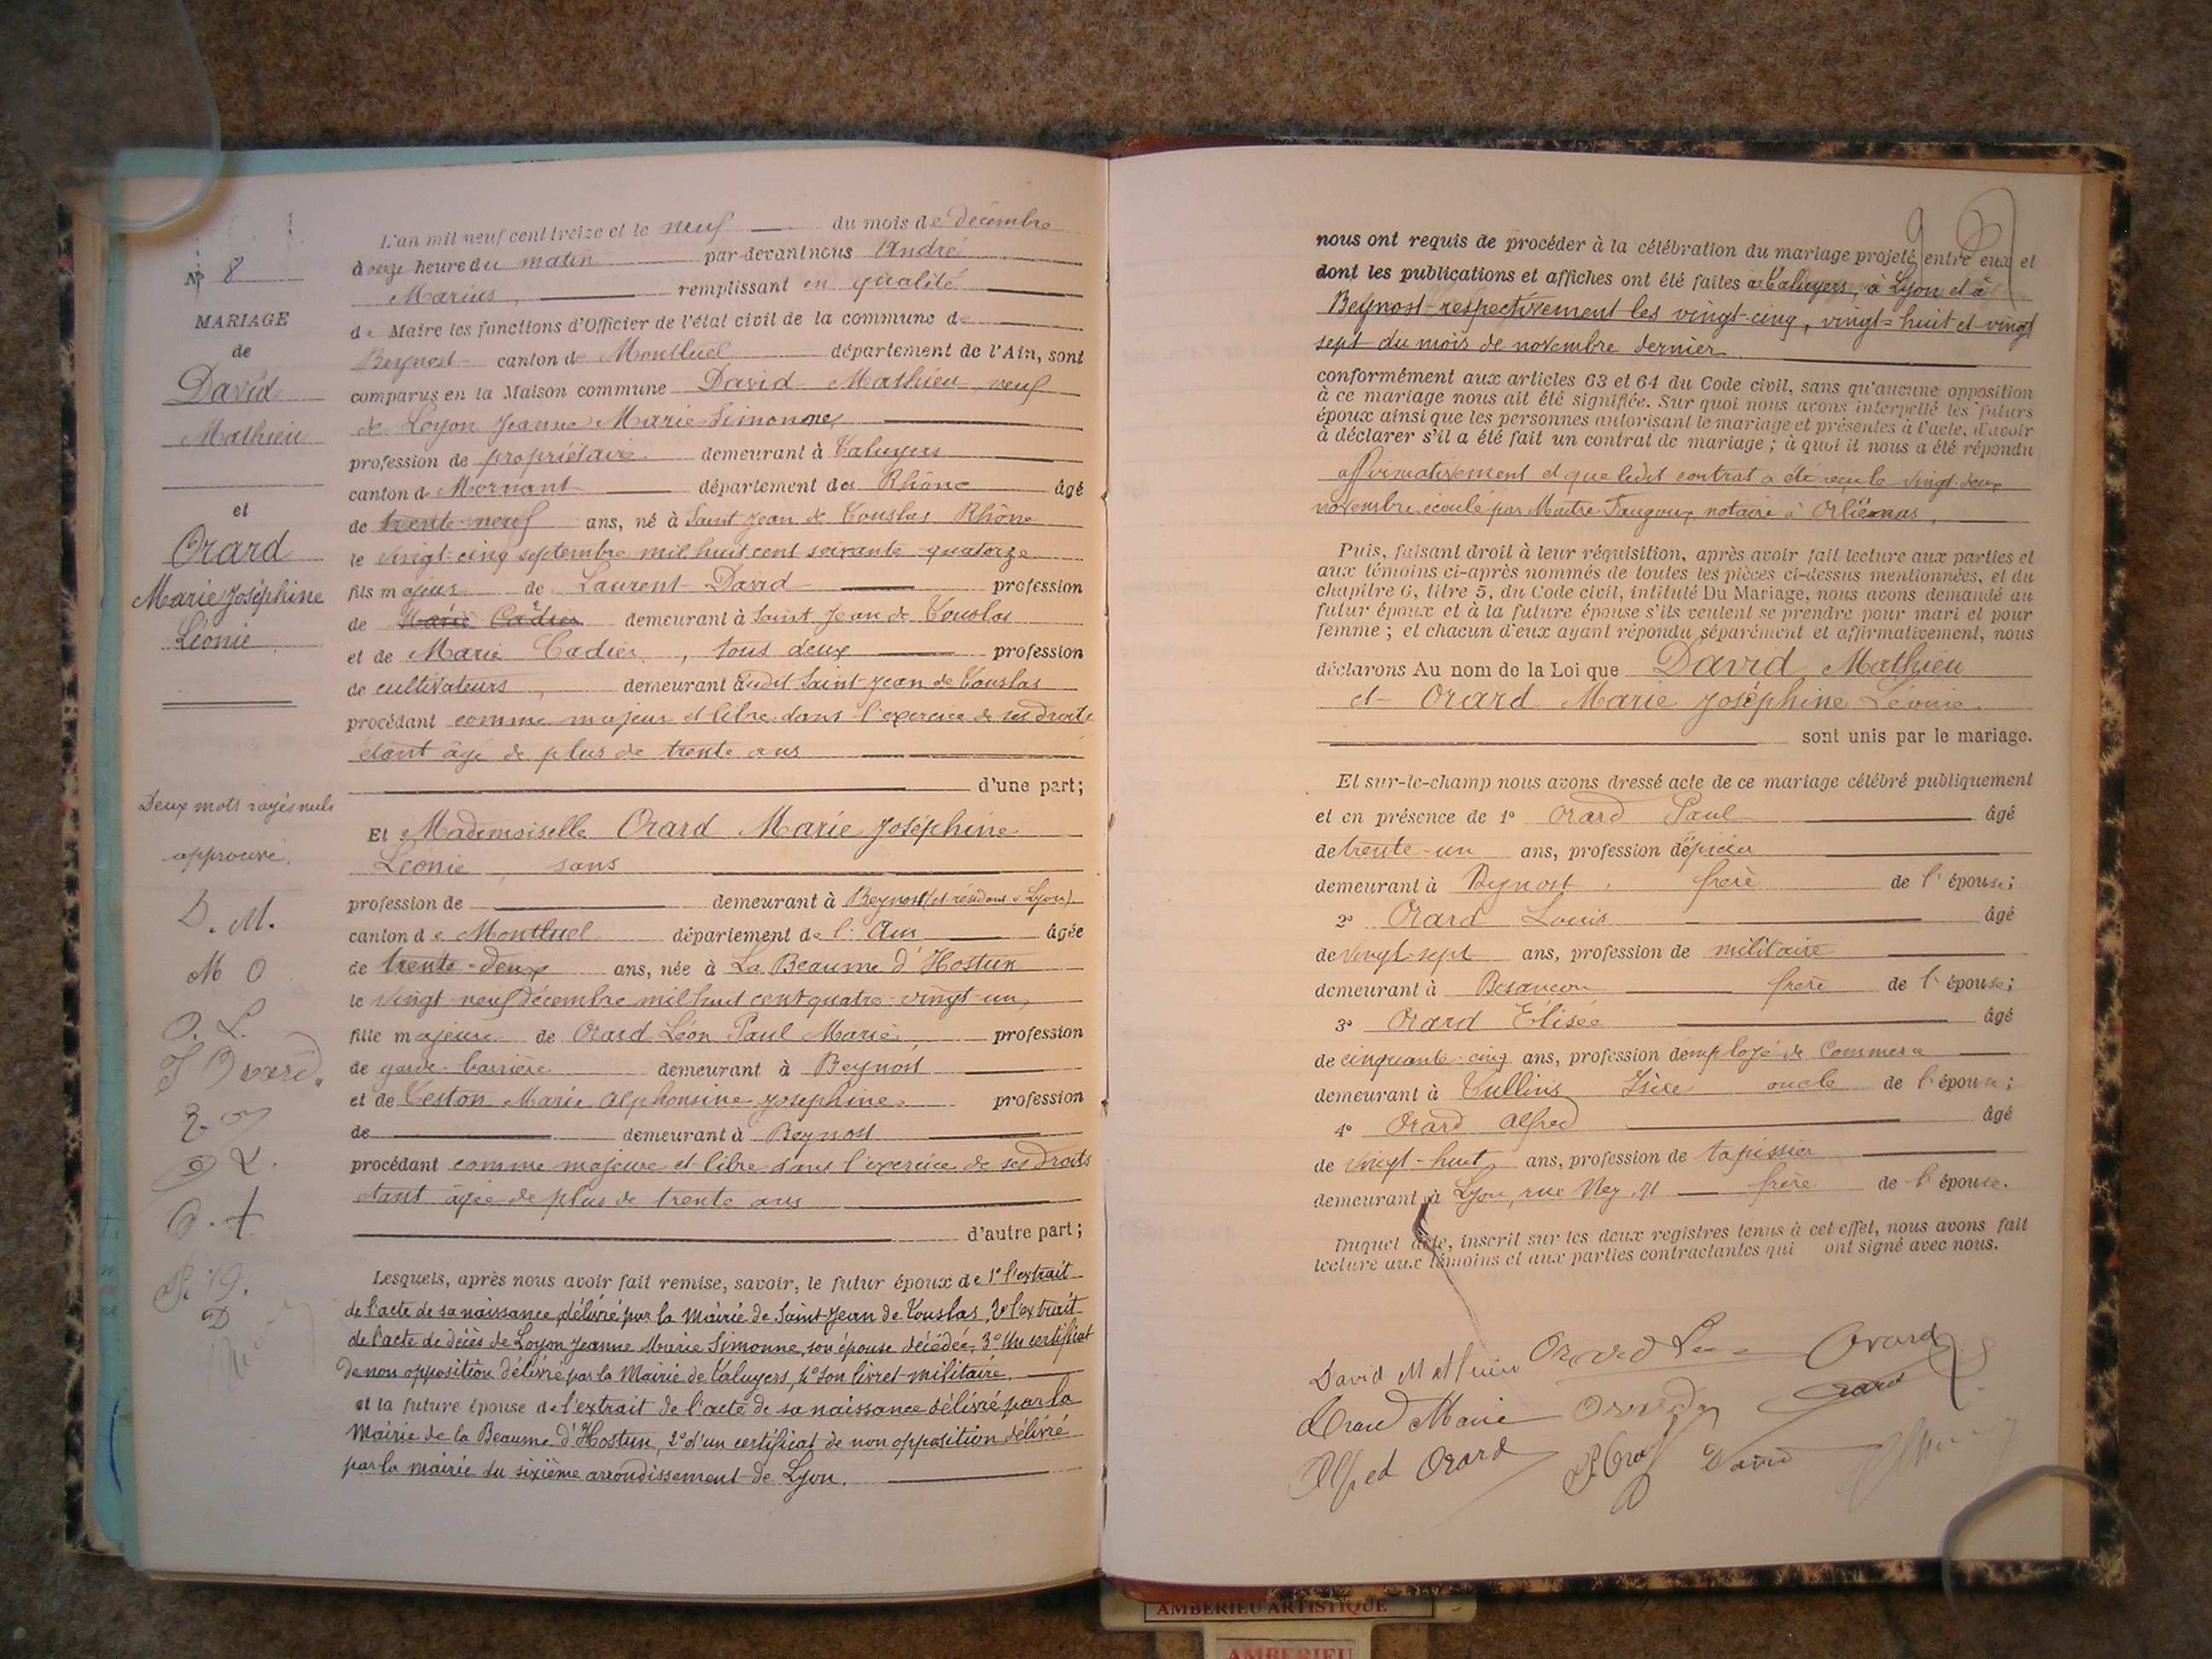 Nº 8
MARIAGE
de
David
Mathieu
et
Orard
Marie Joséphine
Léonie
Deux mots rayés nuls
approuvé.
D. M.
M O
O. L.
L'an mil neuf cent treize et le neuf du mois de décembre
à onze heure du matin par-devant nous André
Marius, remplissant en qualité
de Maire les fonctions d'Officier de l'état civil de la commune de
Beynost canton de Montluel département de l'Ain, sont
comparus en la Maison commune David Mathieu, veuf
de Loyon Jeanne Marie Simonne,
profession de propriétaire demeurant à Taluyers
canton de Mornant département du Rhône âgé
de trente-neuf ans, né à Saint Jean de Touslas Rhône
le vingt-cinq septembre mil huit cent soixante quatorze
fils majeur de Laurent David profession
de Marie Cadier demeurant à Saint Jean de Touslas
et de Marie Cadier, tous deux profession
de cultivateurs, demeurant audit Saint-Jean de Touslas
procédant comme majeur et libre dans l'exercice de ses droits
étant âgé de plus de trente ans
d'une part;
Et Mademoiselle Orard Marie Joséphine
Léonie, sans
profession de demeurant à Beynost (et résidant à Lyon)
canton de Montluel département de l'Ain âgée
de trente-deux ans, née à La Beaume d'Hostun
le vingt-neuf décembre mil huit cent quatre-vingt-un,
fille majeure de Orard Léon Paul Marie, profession
de garde-barrière demeurant à Beynost
et de Teston Marie Alphonsine Josephine profession
de demeurant à Beynost
procédant comme majeure et libre dans l'exercice de ses droits
étant âgée de plus de trente ans
d'autre part;
Lesquels, après nous avoir fait remise, savoir, le futur époux de 1º l'extrait
de l'acte de sa naissance délivré par la Mairie de Saint-Jean de Touslas, 2º l'extrait
de l'acte de décès de Loyon Jeanne Marie Simonne, son épouse décédée, 3º Un certificat
de non opposition délivré par la Mairie de Taluyers, 4º son livret militaire.
et la future épouse de l'extrait de l'acte de sa naissance délivré par la
Mairie de la Beaume d'Hostun, 2º d'un certificat de non opposition délivré
par la mairie du sixième arrondissement de Lyon.
nous ont requis de procéder à la célébration du mariage projeté entre eux et
dont les publications et affiches ont été faites à Taluyers, à Lyon et à
Beynost respectivement les vingt-cinq, vingt-huit et vingt
sept du mois de novembre dernier
conformément aux articles 63 et 64 du Code civil, sans qu'aucune opposition
à ce mariage nous ait été signifiée. Sur quoi nous avons interpellé les futurs
époux ainsi que les personnes autorisant le mariage et présentes à l'acte, d'avoir
à déclarer s'il a été fait un contrat de mariage; à quoi il nous a été répondu
affirmativement et que ledit contrat a été reçu le vingt-deux
novembre écoulé par Maître notaire à Orliénas,
Puis, faisant droit à leur réquisition, après avoir fait lecture aux parties et
aux témoins ci-après nommés de toutes les pièces ci-dessus mentionnées, et du
chapitre 6, titre 5, du Code civil, intitulé Du Mariage, nous avons demandé au
futur époux et à la future épouse s'ils veulent se prendre pour mari et pour
femme; et chacun d'eux ayant répondu séparément et affirmativement, nous
déclarons Au nom de la Loi que David Mathieu
et Orard Marie Joséphine Léonie
sont unis par le mariage.
Et sur-le-champ nous avons dressé acte de ce mariage célébré publiquement
et en présence de 1º Orard Paul âgé
de trente-un ans, profession d'épicier
demeurant à Beynost, frère de l'épouse;
2º Orard Louis âgé
de vingt-sept ans, profession de militaire
demeurant à Besançon frère de l'épouse;
3º Orard Elisée âgé
de cinquante-cinq ans, profession d'employé de Commerce
demeurant à Tullins Isère oncle de l'épouse;
4º Orard Alfred âgé
de vingt-huit ans, profession de tapissier
demeurant à Lyon, rue Ney 71 frère de l'épouse.
Duquel acte, inscrit sur les deux registres tenus à cet effet, nous avons fait
lecture aux témoins et aux parties contractantes qui ont signé avec nous.
David Mathieu Orard Orard
Orard Marie Orard
Alfred Orard David
AMBERIEU ARTISTIQUE
AMBERIEU